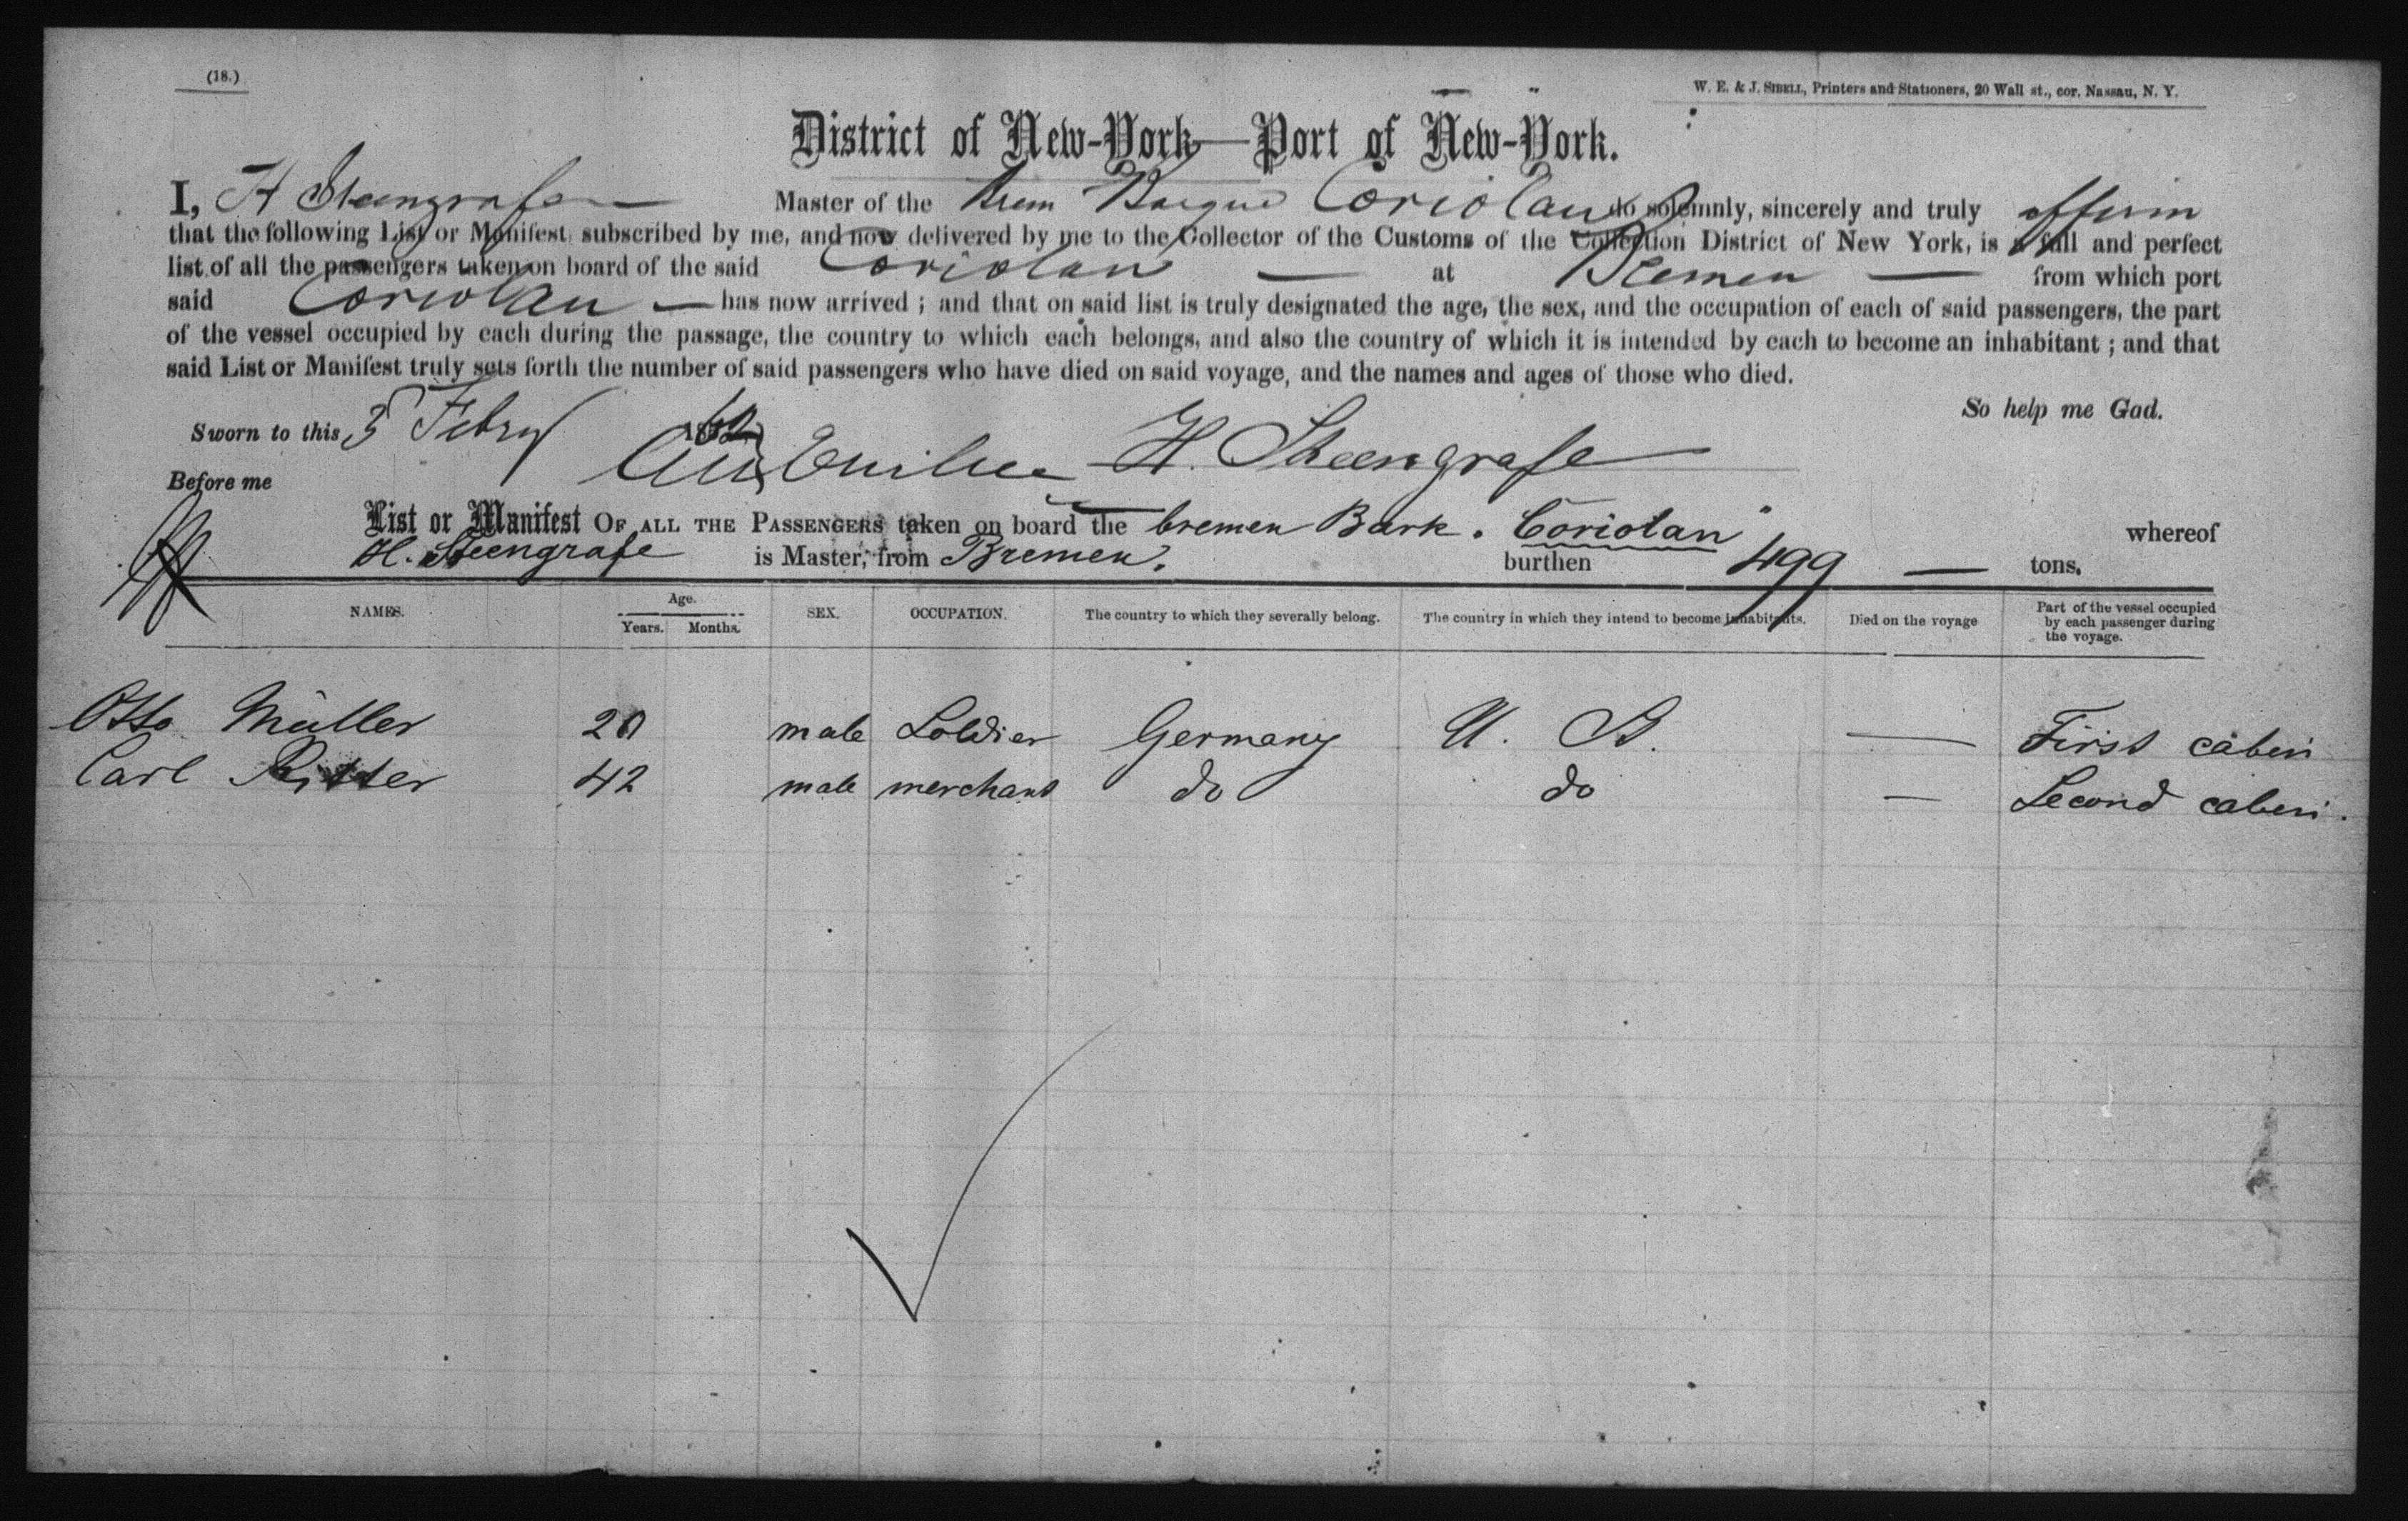 (18.)
W. E. & J. SIBELL, Printers and Stationers, 20 Wall st., cor. Nassau, N. Y.
District of New-York—Port of New-York.
I, H Steengrafe Master of the Brem Barque Coriolan do solemnly, sincerely and truly affirm
that the following List or Manifest subscribed by me, and now delivered by me to the Collector of the Customs of the Collection District of New York, is a full and perfect
list of all the passengers taken on board of the said Coriolan — at Bremen — from which port
said Coriolan — has now arrived ; and that on said list is truly designated the age, the sex, and the occupation of each of said passengers, the part
of the vessel occupied by each during the passage, the country to which each belongs, and also the country of which it is intended by each to become an inhabitant ; and that
said List or Manifest truly sets forth the number of said passengers who have died on said voyage, and the names and ages of those who died.
So help me God.
Sworn to this 5 Febry 1862
H. Steengrafe
Before me
List or Manifest OF ALL THE PASSENGERS taken on board the bremen Bark. Coriolan whereof
H. Steengrafe is Master, from Bremen. burthen 499 — tons.
NAMES. Age. Years. Months. SEX. OCCUPATION. The country to which they severally belong. The country in which they intend to become inhabitants. Died on the voyage Part of the vessel occupied by each passenger during the voyage.
Otto Müller 20 male Soldier Germany U. S. — First cabin
Carl Ritter 42 male merchant do do — Second cabin.